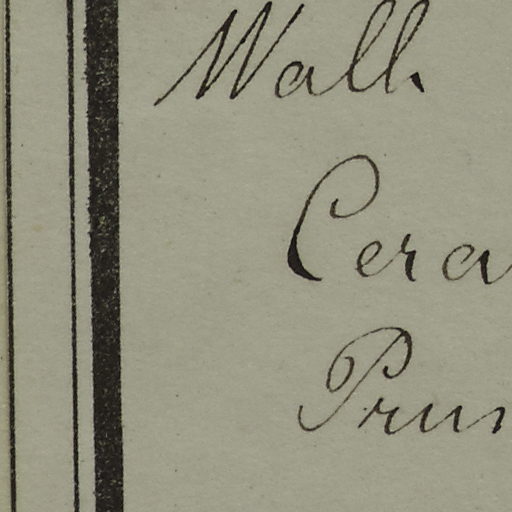 Wall.
Cera
Prun